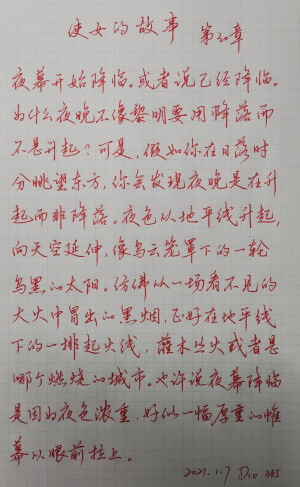 使女的故事 第30章
夜幕开始降临。或者说已经降临。
为什么夜晚不像黎明要用降落而
不是升起？可是，假如你在日落时
分眺望东方，你会发现夜晚是在升
起而非降落。夜色从地平线升起，
向天空延伸，像乌云笼罩下的一轮
乌黑的太阳。仿佛从一场看不见的
大火中冒出的黑烟，正好在地平线
下的一排起火线，灌木丛火或者是
哪个燃烧的城市。也许说夜幕降临
是因为夜色浓重，好似一幅厚重的帷
幕从眼前拉上。
2021.1.7 Dio 365